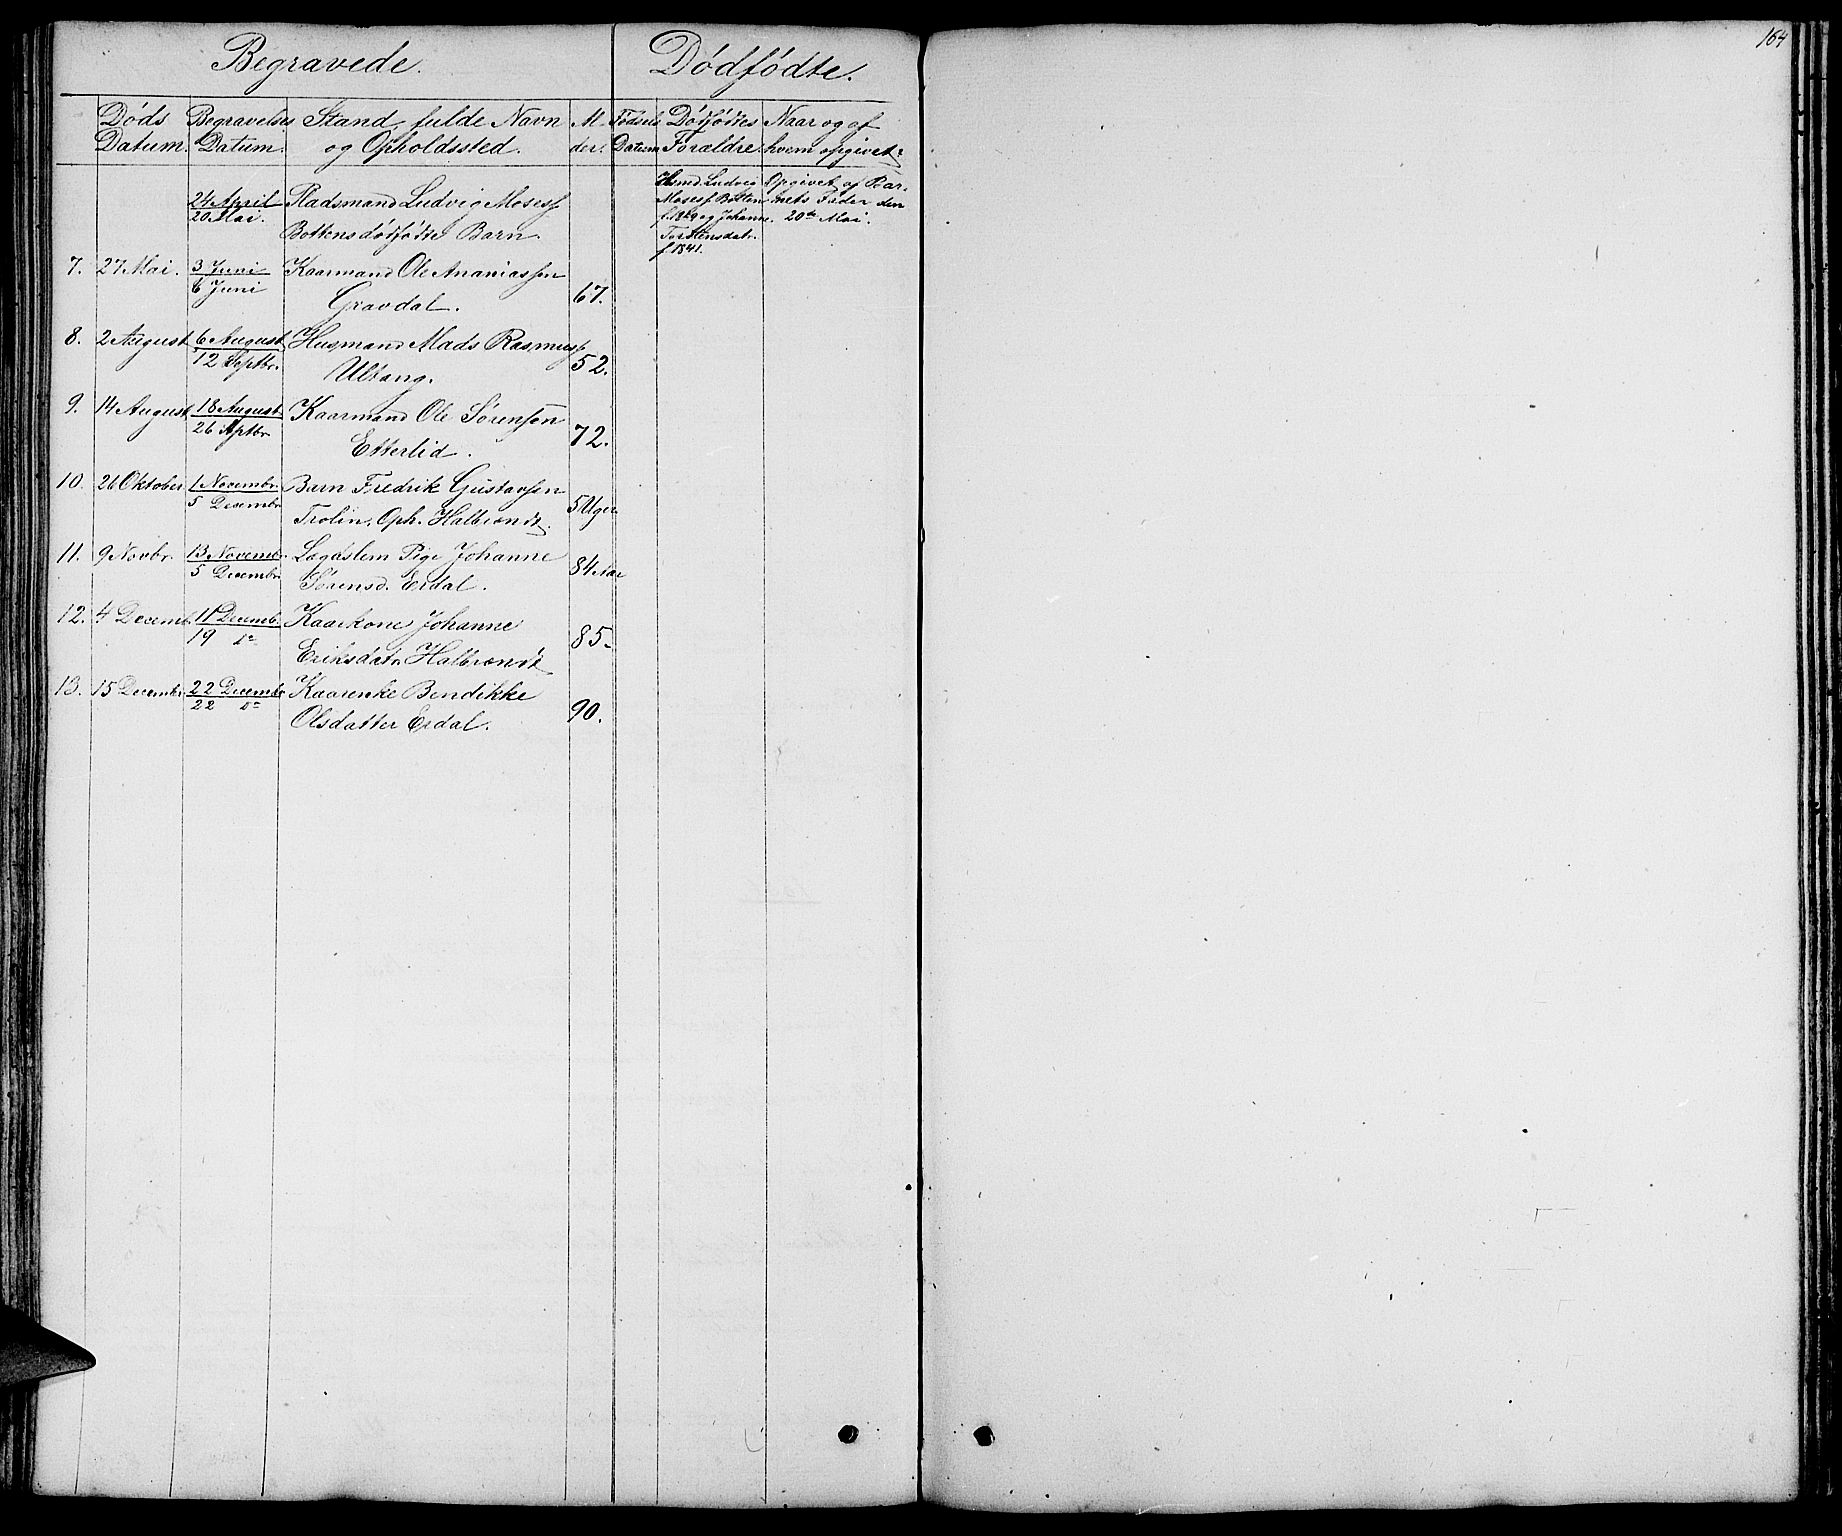 164
Begravede. Dødfødte.
Døds Begravelses Stand, fulde Navn Al- Fødsels Dødfødtes Naar og af
Datum. Datum. og Opholdssted. der. Datum Forældre. hvem opgivet.
24 April Pladsmand Ludvig Mosess
20 Mai. Bottens dødfødte Barn.
Husmd. Ludvig Opgivet af Bar-
Mosess Botten nets Fader den
og Johanne 20de Mai.
Torstensdatr.
f 1841.
7. 27 Mai. 3 Juni Kaarmand Ole Ananiassen
6 Juni Gravdal. 67.
8. 2 August 6 August Husmand Mads Rasmuss
12 Septbr. Ultang. 52.
9. 14 August 18 August Kaarmand Ole Sørensen
26 Septbr. Etterlid. 72.
10. 26 Oktober 1 Novembr. Barn Fredrik Gustavsen
5 Decembr Trolin, Oph. Halbrendt. 5 Uger
11. 9 Novbr. 13 Novembr. Lægdslem Pige Johanne
5 Decembr Sørensd. Erdal. 84 Aar
12. 4 Decemb. 11 Decemb. Kaarkone Johanne
19 do Eriksdatr. Halbrendt 85.
13. 15 Decembr 22 Decembr Kaarenke Bendikke
22 do Olsdatter Erdal. 90.